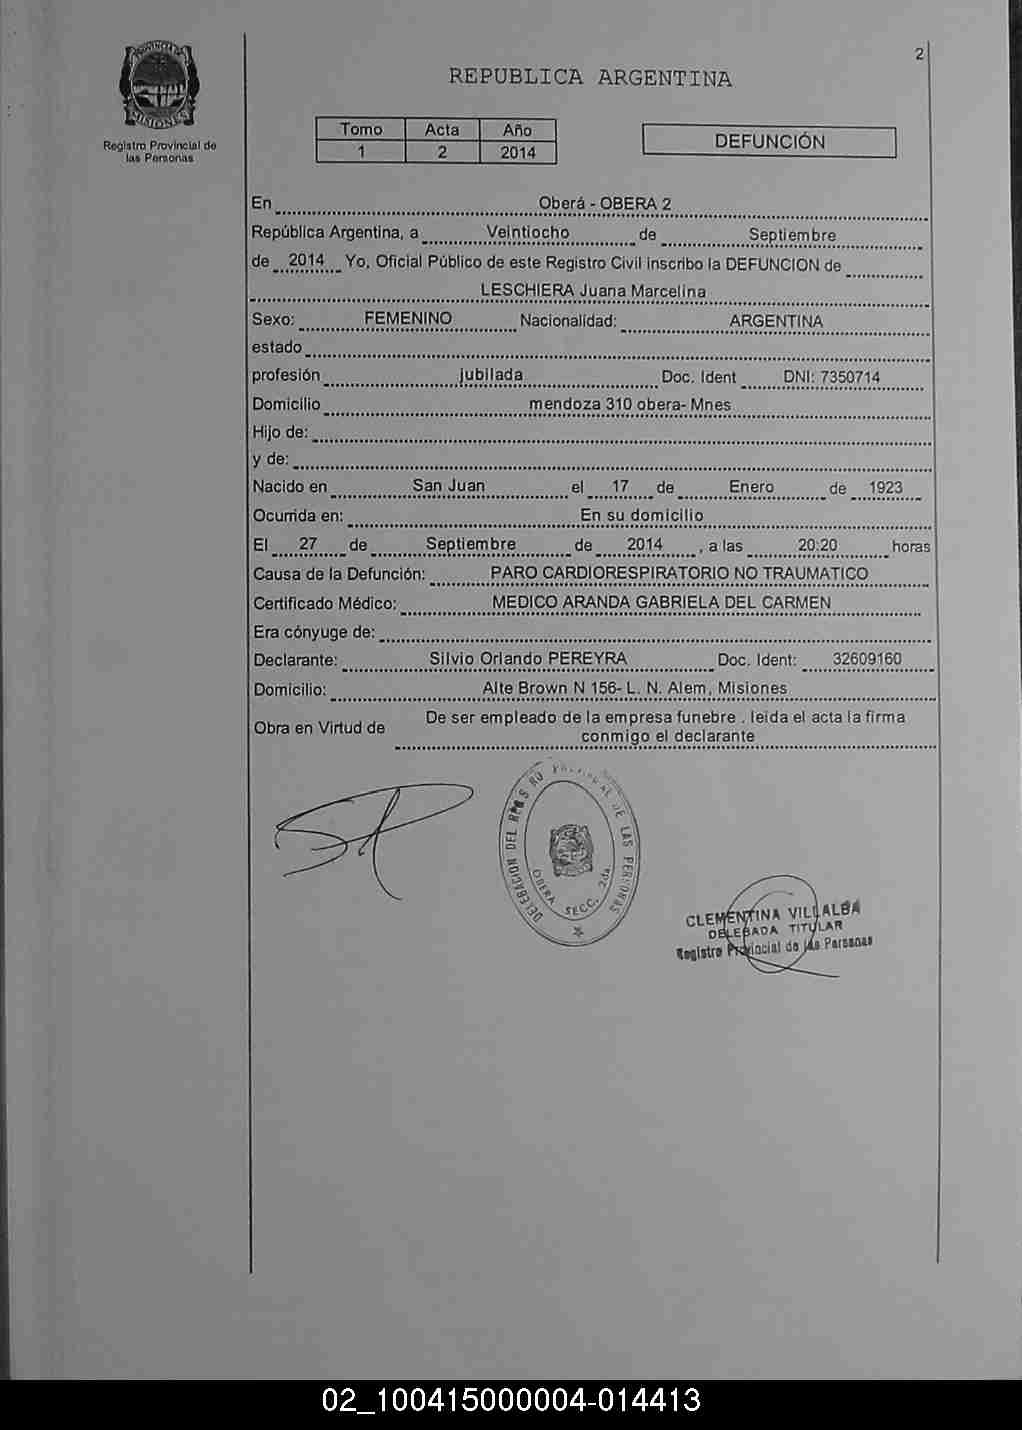 2
PROVINCIA DE
MISIONES
Registro Provincial de
las Personas
REPUBLICA ARGENTINA
Tomo Acta Año
1 2 2014
DEFUNCIÓN
En Oberá - OBERA 2
República Argentina, a Veintiocho de Septiembre
de 2014 Yo, Oficial Público de este Registro Civil inscribo la DEFUNCION de
LESCHIERA Juana Marcelina
Sexo: FEMENINO Nacionalidad: ARGENTINA
estado
profesión jubilada Doc. Ident DNI: 7350714
Domicilio mendoza 310 obera- Mnes
Hijo de:
y de:
Nacido en San Juan el 17 de Enero de 1923
Ocurrida en: En su domicilio
El 27 de Septiembre de 2014 , a las 20:20 horas
Causa de la Defunción: PARO CARDIORESPIRATORIO NO TRAUMATICO
Certificado Médico: MEDICO ARANDA GABRIELA DEL CARMEN
Era cónyuge de:
Declarante: Silvio Orlando PEREYRA Doc. Ident: 32609160
Domicilio: Alte Brown N 156- L. N. Alem, Misiones
Obra en Virtud de De ser empleado de la empresa funebre . leida el acta la firma
conmigo el declarante
DELEGACION DEL REGISTRO PROVINCIAL DE LAS PERSONAS
OBERA SECC. 2da
CLEMENTINA VILLALBA
DELEGADA TITULAR
Registro Provincial de las Personas
02_100415000004-014413